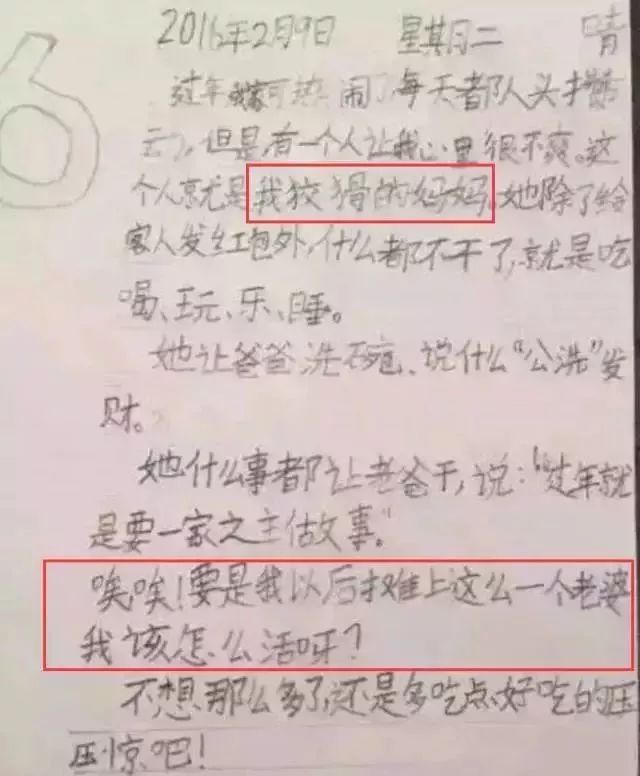 6
2016年2月9日 星期二 晴
过年我家可热闹了,每天都队人头攒
云力,但是,有一个人让我心里很不爽。这
个人就是我狡猾的妈妈,她除了给
家人发红包外,什么都不干了,就是吃
喝、玩、乐、睡。
她让爸爸洗碗,说什么“公洗”发
财。
她什么事都让老爸干,说:“过年就
是要一家之主做事。”
唉唉!要是我以后摊上这么一个老婆
我该怎么活呀?
不想那么多了,还是多吃点好吃的压
压惊吧!